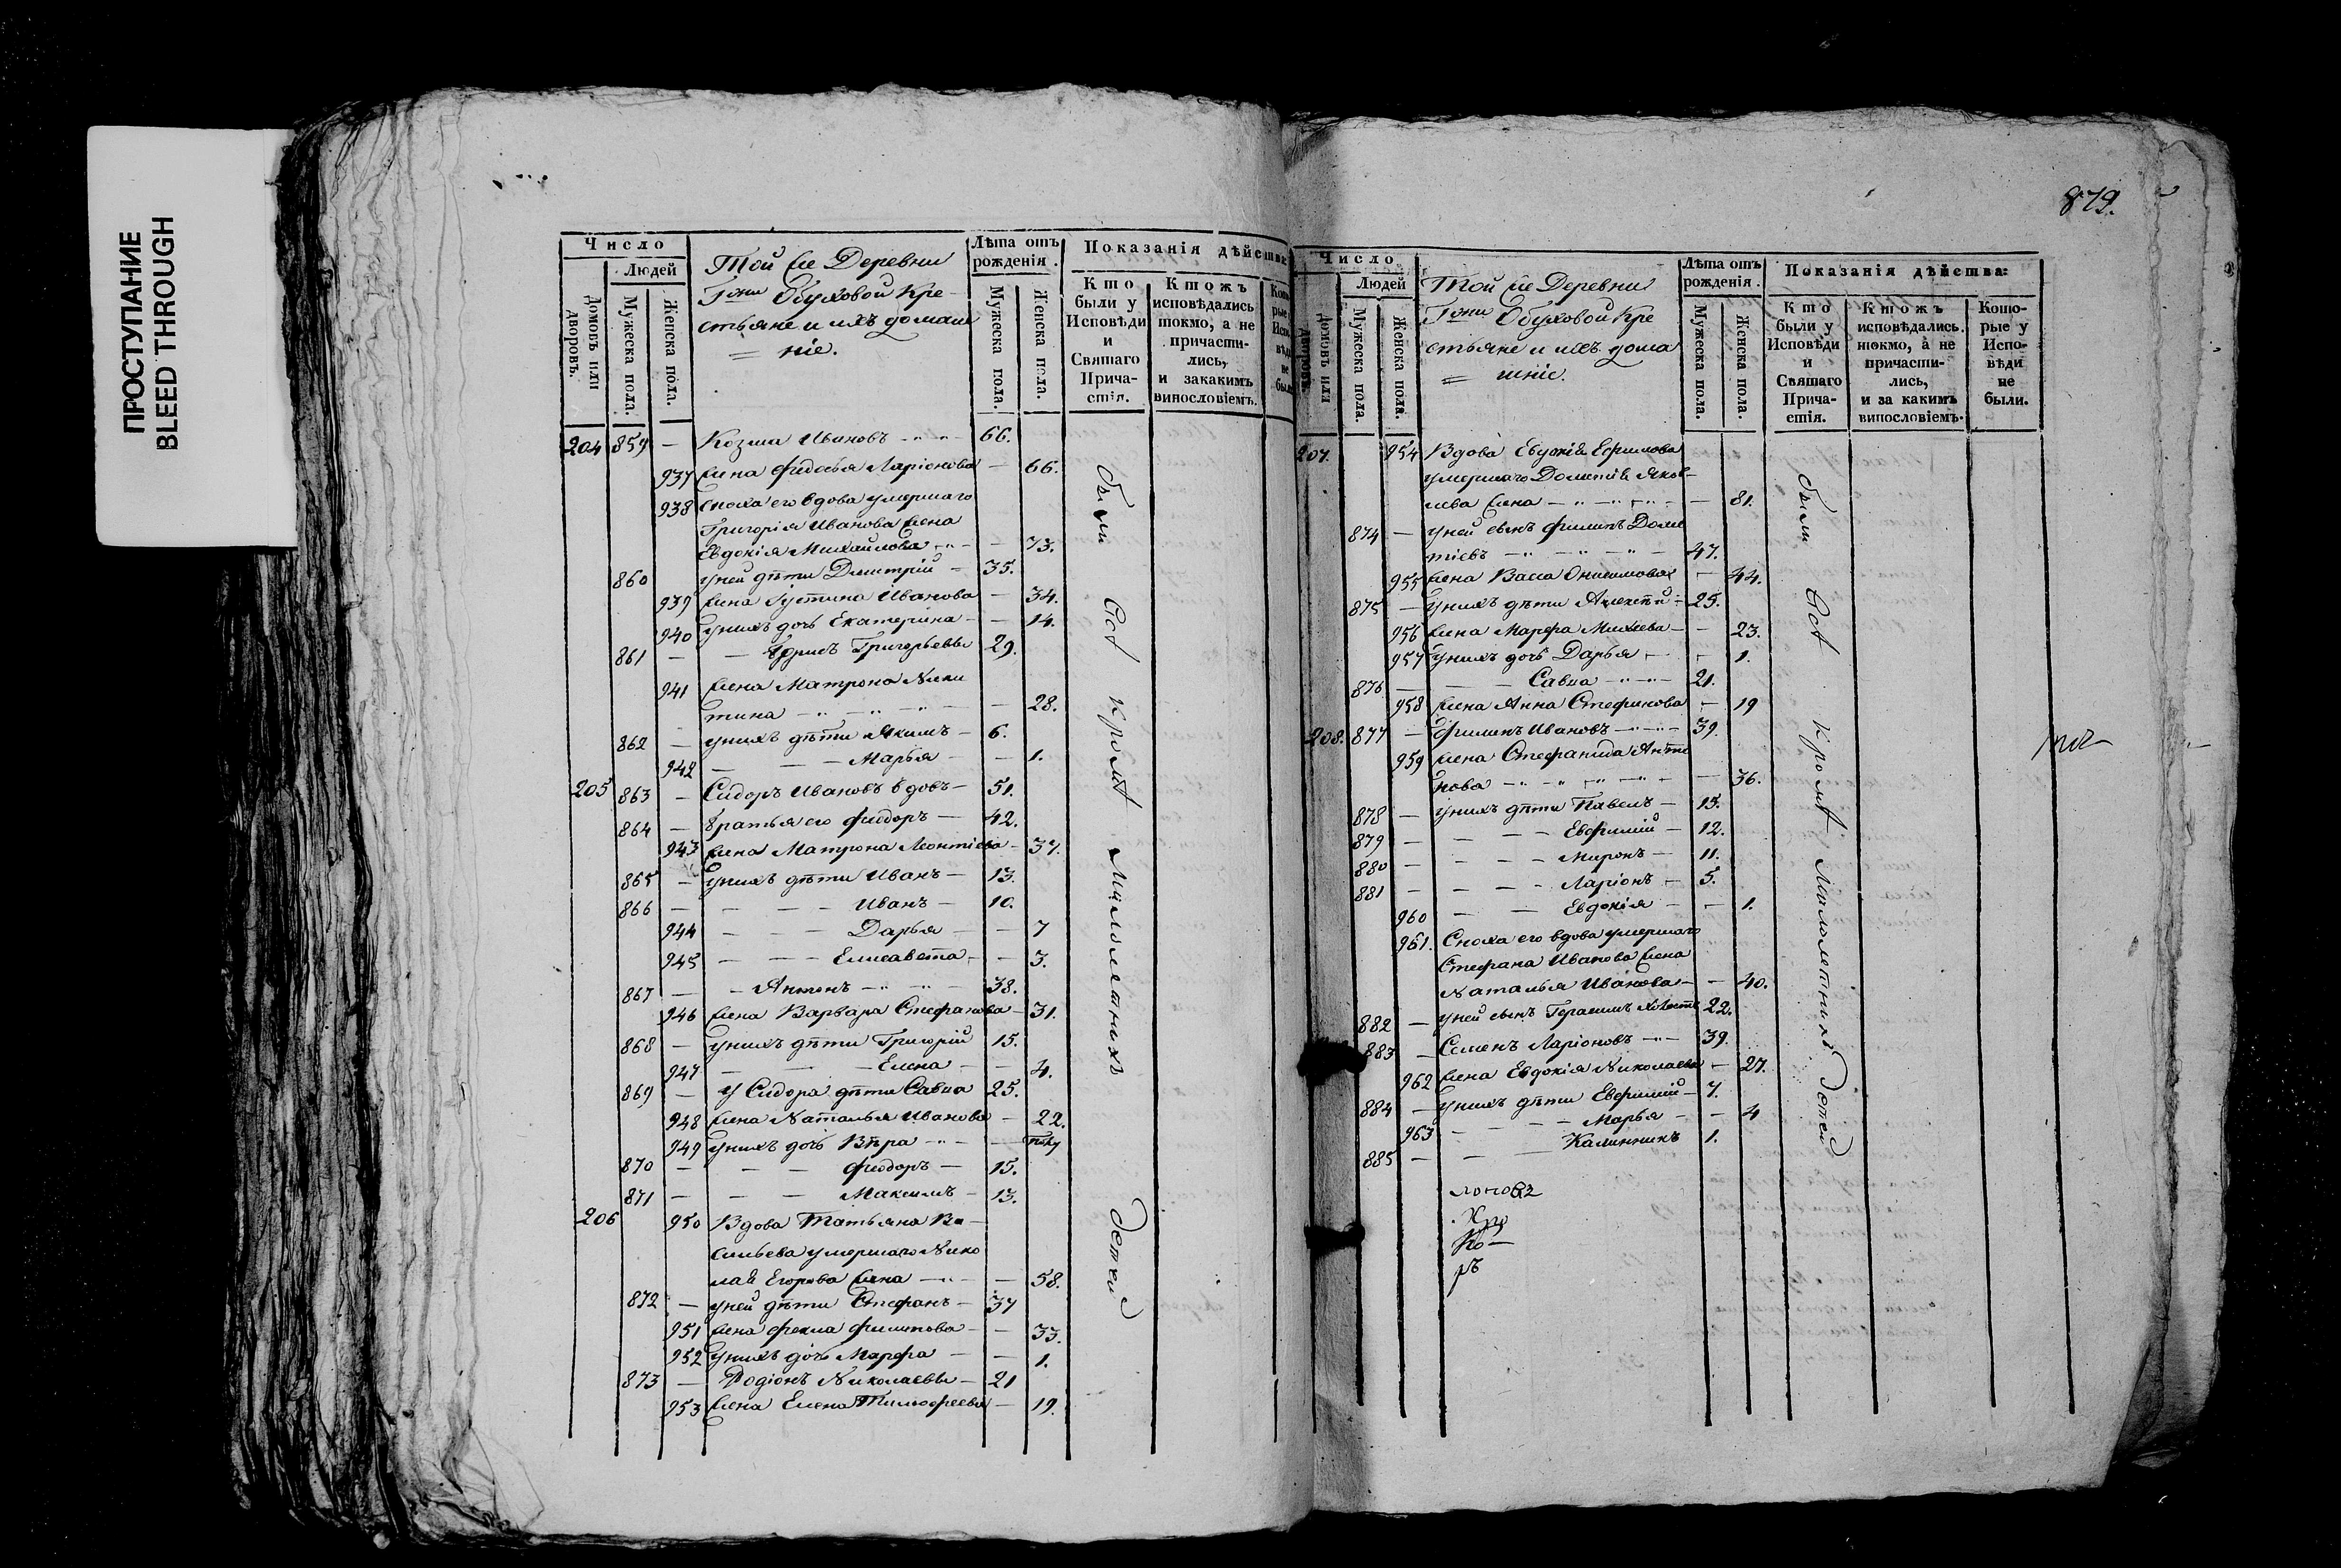 ПРОСТУПАНИЕ
BLEED THROUGH
Число
Людей
Домовъ или дворовъ.
Мужеска пола.
Женска пола.
Той же Деревни
Гжи Обуховой Кре-
стьяне и ихъ домаш
= ніе.
Лѣта отъ рожденія.
Мужеска пола.
Женска пола.
Показанія дѣйства:
Кто были у Исповѣди и Святаго Причастія.
Ктожъ исповѣдались токмо, а не причастились, и закакимъ винословіемъ.
204 859 — Козма Ивановъ — 66.
937 жена Федосья Ларіонова — 66.
938 сноха его вдова умершаго
Григорія Иванова жена
Евдокія Михайлова — 73.
860 уней дѣти Димитрій — 35.
939 жена Іустина Иванова — 34.
940 унихъ дочь Екатерина — 14.
861 — Григорьевы 29.
941 жена Матрона Ники
тина — 28.
862 — унихъ дѣти Якимъ — 6.
942 — Марья — 1.
205 863 — Сидоръ Ивановъ вдовъ — 51.
864 — братья его Феодоръ — 42.
943 жена Матрона Леонтіева — 37.
865 — унихъ дѣти Иванъ — 13.
866 — Иванъ — 10.
944 — Дарья — 7
945 — Елисавета — 3.
867 — Антонъ — 38.
946 жена Варвара Стефанова — 31.
868 — унихъ дѣти Григорій 15.
947 — Елена — 4.
869 — у Сидора дѣти Савва 25.
948 жена Наталья Иванова — 22.
949 унихъ дочь Вѣра — полу
870 — Феодоръ — 15.
871 — Максимъ — 13.
206 950 Вдова Татьяна Ва-
сильева умершаго Нико
лая Егорова жена — 58.
872 — уней дѣти Стефанъ — 37
951 жена Фекла Филипова — 33.
952 унихъ дочь Марфа — 1.
873 — Родіонъ Николаевы — 21
953 жена Елена Тимофеева — 19.
были всѣ кромѣ малолѣтнихъ дѣтей
879.
Число
Людей
Домовъ или дворовъ.
Мужеска пола.
Женска пола.
Той же Деревни
Гжи Обуховой Кре
стьяне и ихъ дома
= шніе.
Лѣта отъ рожденія.
Мужеска пола.
Женска пола.
Показанія дѣйства:
Кто были у Исповѣди и Святаго Причастія.
Ктожъ исповѣдались токмо, а не причастились, и за какимъ винословіемъ.
Которые у Исповѣди не были.
207. 954 Вдова Евдокія Ефимова
умершаго Дометія Яков-
лева жена — 81.
874 — уней сынъ Филипъ Доме
тіевъ — 47.
955 жена Васса Онисимова — 44.
875 — унихъ дѣти Алексѣй — 25.
956 жена Марфа Михеева — 23.
957 унихъ дочь Дарья — 1.
876 — Савва — 21.
958 жена Анна Стефанова — 19
208. 877 — Филипъ Ивановъ — 39.
959 жена Стефанида Анти
пова — 36.
878 — унихъ дѣти Павелъ — 15.
879 — Евфимій — 12.
880 — Миронъ — 11.
881 — Ларіонъ — 5.
960 — Евдокія — 1.
961. Сноха его вдова умершаго
Стефана Иванова жена
Наталья Иванова — 40.
882 — уней сынъ Герасимъ холостъ 22.
883 — Семенъ Ларіоновъ — 39.
962 жена Евдокія Николаева — 27.
884 — унихъ дѣти Евфимій — 7.
963 — Марья — 4
885 — Калинникъ 1.
были всѣ кромѣ малолѣтнихъ дѣтей